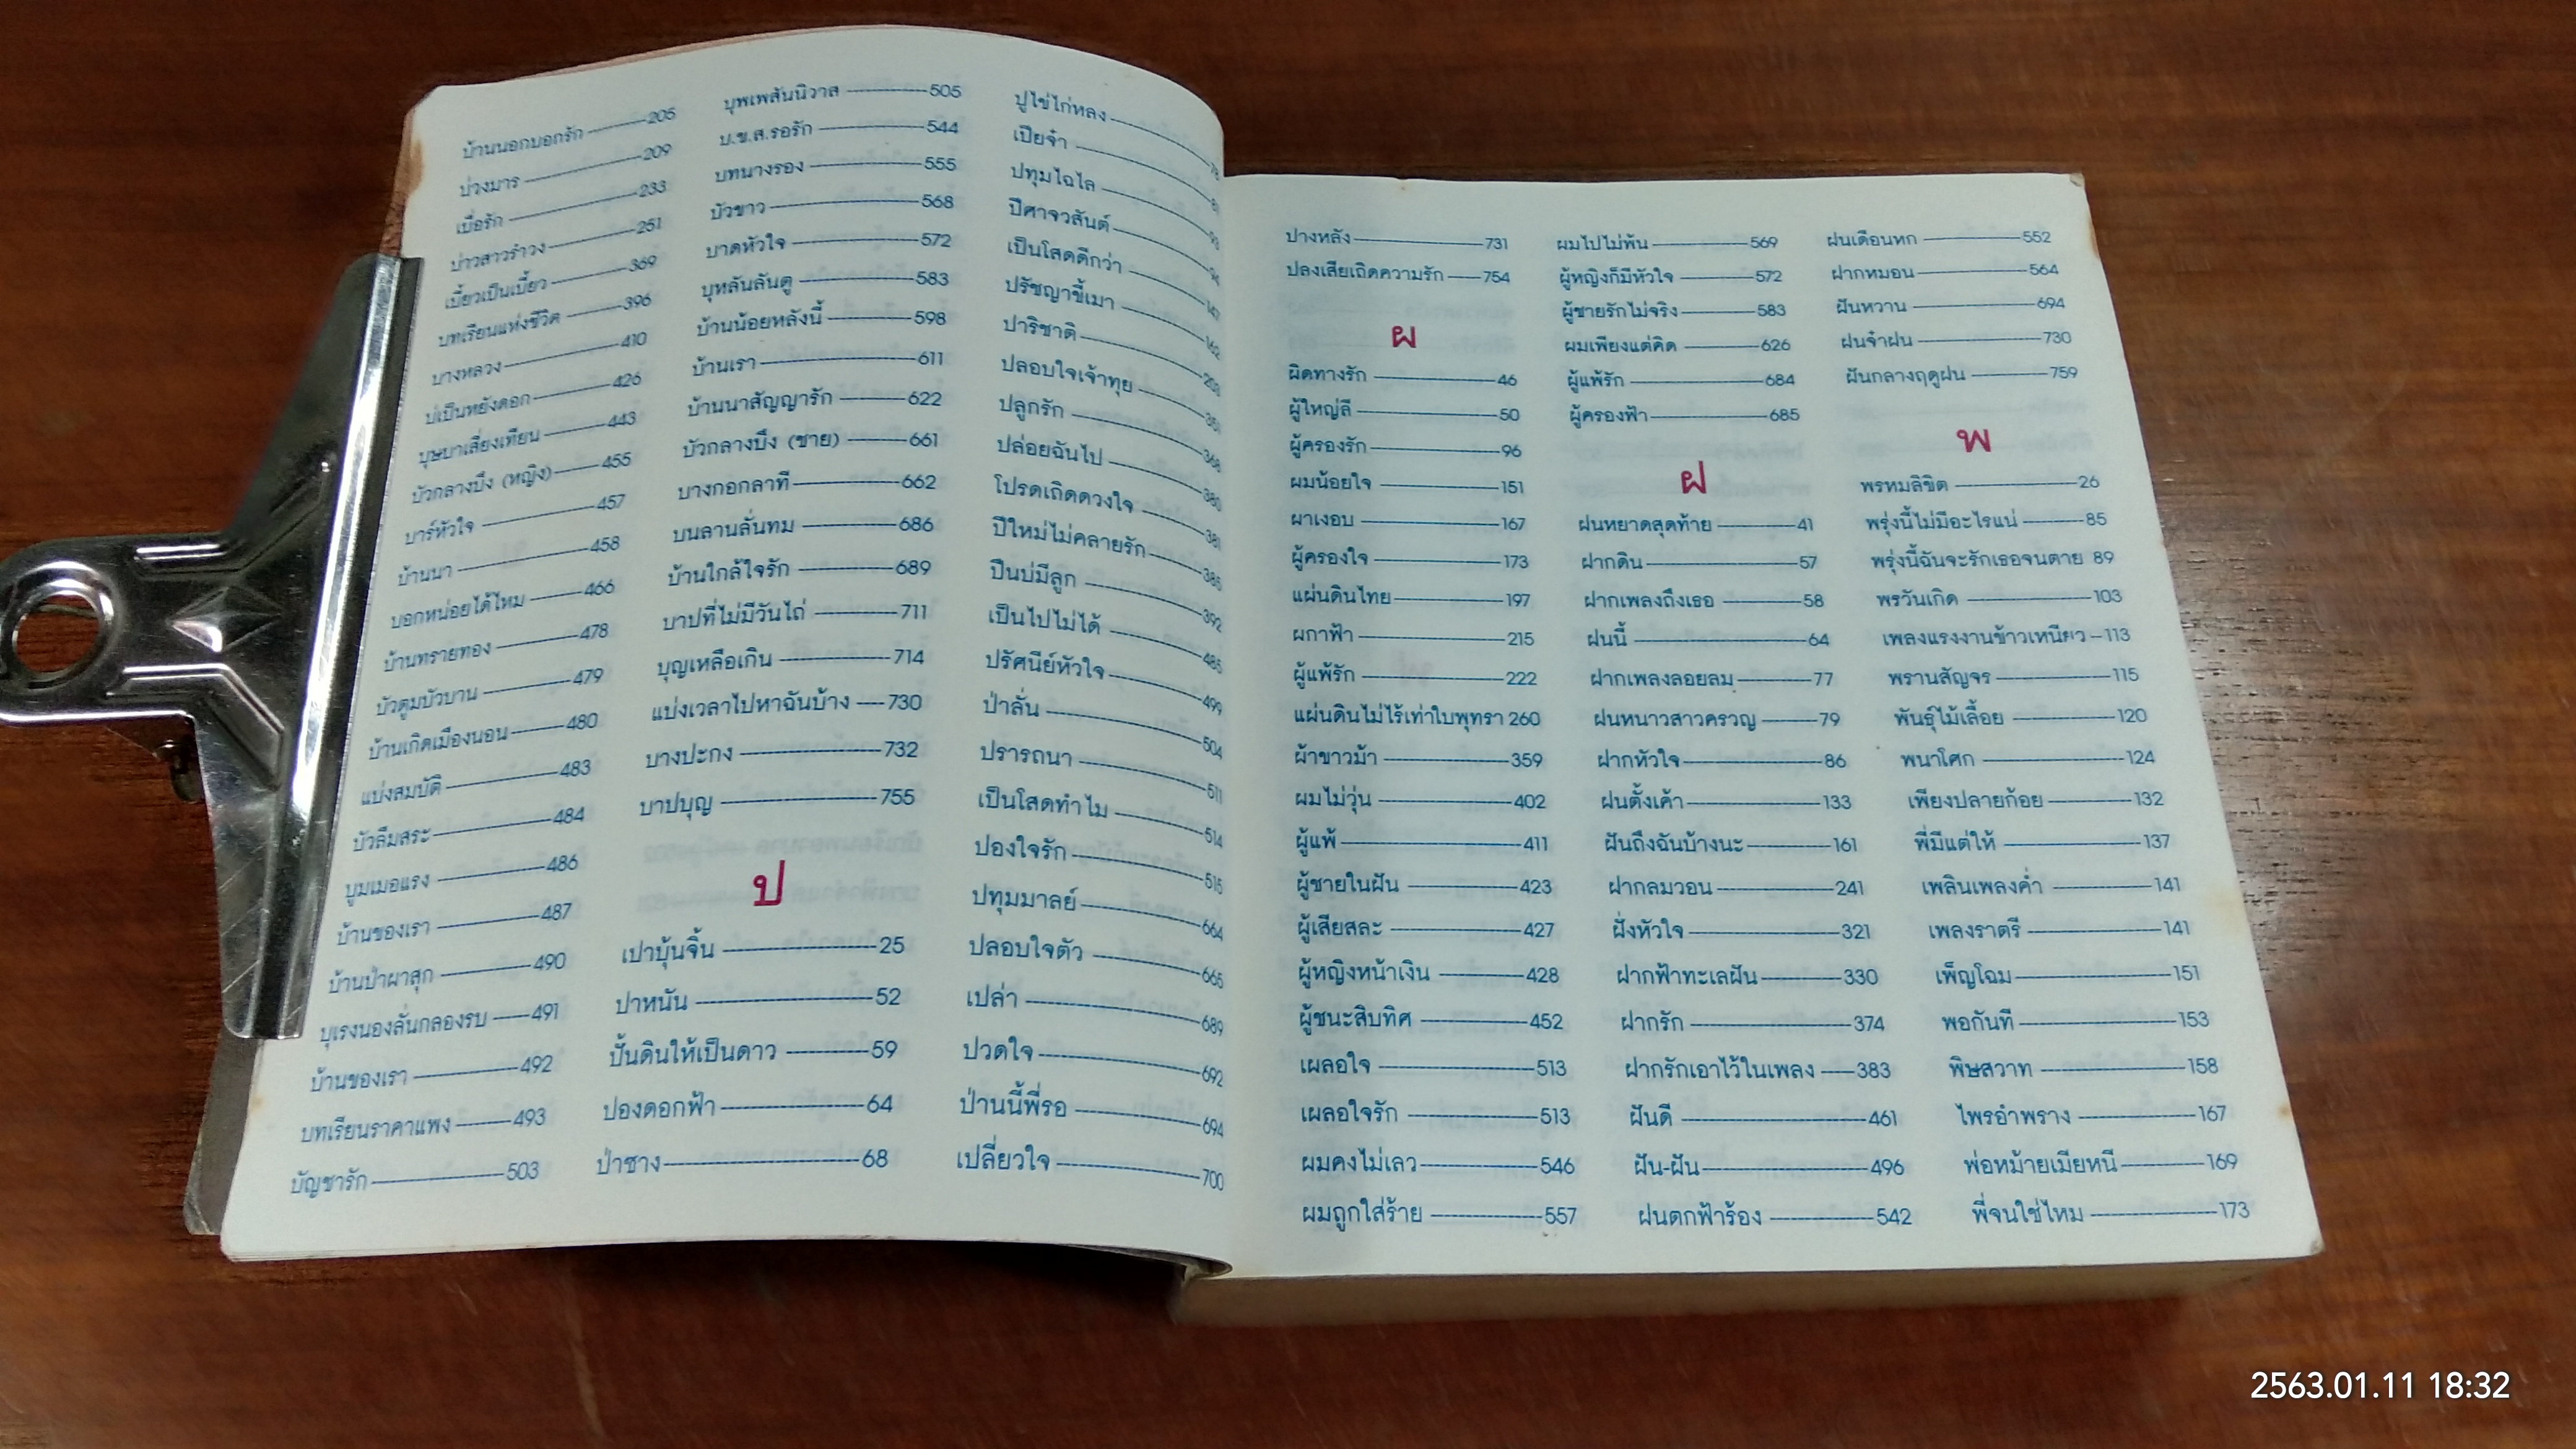 บ้านนอกบอกรัก 205
บ่วงมาร 209
เบื่อรัก 233
บ่าวสาวรำวง 251
เบี้ยวเป็นเบี้ยว 369
บทเรียนแห่งชีวิต 396
บางหลวง 410
บ่เป็นหยังดอก 426
บุษบาเสี่ยงเทียน 443
บัวกลางบึง (หญิง) 455
บาร์หัวใจ 457
บ้านนา 458
บอกหน่อยได้ไหม 466
บ้านทรายทอง 478
บัวตูมบัวบาน 479
บ้านเกิดเมืองนอน 480
แบ่งสมบัติ 483
บัวลืมสระ 484
บูมเมอแรง 486
บ้านของเรา 487
บ้านป่าผาสุก 490
บุเรงนองลั่นกลองรบ 491
บ้านของเรา 492
บทเรียนราคาแพง 493
บัญชารัก 503
บุพเพสันนิวาส 505
บ.ข.ส.รอรัก 544
บทนางรอง 555
บัวขาว 568
บาดหัวใจ 572
บุหลันลันตู 583
บ้านน้อยหลังนี้ 598
บ้านเรา 611
บ้านนาสัญญารัก 622
บัวกลางบึง (ชาย) 661
บางกอกลาที 662
บนลานลั่นทม 686
บ้านใกล้ใจรัก 689
บาปที่ไม่มีวันไถ่ 711
บุญเหลือเกิน 714
แบ่งเวลาไปหาฉันบ้าง 730
บางปะกง 732
บาปบุญ 755
ป
เปาบุ้นจิ้น 25
ปาหนัน 52
ปั้นดินให้เป็นดาว 59
ปองดอกฟ้า 64
ป่าซาง 68
ปูไข่ไก่หลง 78
เปียจ๋า 81
ปทุมไฉไล 93
ปีศาจวสันต์ 94
เป็นโสดดีกว่า 147
ปรัชญาขี้เมา 162
ปาริชาติ 203
ปลอบใจเจ้าทุย 351
ปลูกรัก 368
ปล่อยฉันไป 380
โปรดเถิดดวงใจ 381
ปีใหม่ไม่คลายรัก 385
ปืนบ่มีลูก 392
เป็นไปไม่ได้ 485
ปรัศนีย์หัวใจ 499
ป่าลั่น 504
ปรารถนา 511
เป็นโสดทำไม 514
ปองใจรัก 515
ปทุมมาลย์ 664
ปลอบใจตัว 665
เปล่า 689
ปวดใจ 692
ป่านนี้พี่รอ 694
เปลี่ยวใจ 700
ปางหลัง 731
ปลงเสียเถิดความรัก 754
ผ
ผิดทางรัก 46
ผู้ใหญ่ลี 50
ผู้ครองรัก 96
ผมน้อยใจ 151
ผาเงอบ 167
ผู้ครองใจ 173
แผ่นดินไทย 197
ผกาฟ้า 215
ผู้แพ้รัก 222
แผ่นดินไม่ไร้เท่าใบพุทรา 260
ผ้าขาวม้า 359
ผมไม่วุ่น 402
ผู้แพ้ 411
ผู้ชายในฝัน 423
ผู้เสียสละ 427
ผู้หญิงหน้าเงิน 428
ผู้ชนะสิบทิศ 452
เผลอใจ 513
เผลอใจรัก 513
ผมคงไม่เลว 546
ผมถูกใส่ร้าย 557
ผมไปไม่พ้น 569
ผู้หญิงก็มีหัวใจ 572
ผู้ชายรักไม่จริง 583
ผมเพียงแต่คิด 626
ผู้แพ้รัก 684
ผู้ครองฟ้า 685
ฝ
ฝนหยาดสุดท้าย 41
ฝากดิน 57
ฝากเพลงถึงเธอ 58
ฝนนี้ 64
ฝากเพลงลอยลม 77
ฝนหนาวสาวครวญ 79
ฝากหัวใจ 86
ฝนตั้งเค้า 133
ฝันถึงฉันบ้างนะ 161
ฝากลมวอน 241
ฝั่งหัวใจ 321
ฝากฟ้าทะเลฝัน 330
ฝากรัก 374
ฝากรักเอาไว้ในเพลง 383
ฝันดี 461
ฝัน-ฝัน 496
ฝนตกฟ้าร้อง 542
ฝนเดือนหก 552
ฝากหมอน 564
ฝันหวาน 694
ฝนจ๋าฝน 730
ฝันกลางฤดูฝน 759
พ
พรหมลิขิต 26
พรุ่งนี้ไม่มีอะไรแน่ 85
พรุ่งนี้ฉันจะรักเธอจนตาย 89
พรวันเกิด 103
เพลงแรงงานข้าวเหนียว 113
พรานสัญจร 115
พันธุ์ไม้เลื้อย 120
พนาโศก 124
เพียงปลายก้อย 132
พี่มีแต่ให้ 137
เพลินเพลงค่ำ 141
เพลงราตรี 141
เพ็ญโฉม 151
พอกันที 153
พิษสวาท 158
ไพรอำพราง 167
พ่อหม้ายเมียหนี 169
พี่จนใช่ไหม 173
2563.01.11 18:32